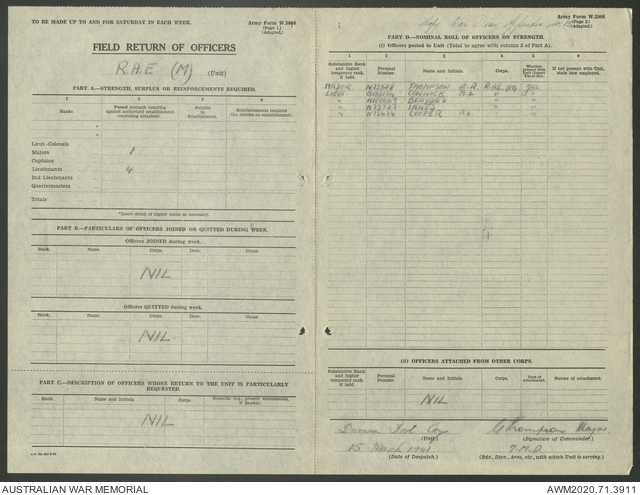 TO BE MADE UP TO AND FOR SATURDAY IN EACH WEEK.
Army Form W.3008
(Page 1)
(Adapted.)
FIELD RETURN OF OFFICERS
R.A.E (M) (Unit)
PART A.—STRENGTH, SURPLUS OR REINFORCEMENTS REQUIRED.
1 2 3 4
Ranks. Posted strength counting against authorised establishment (excluding attached). Surplus to Establishment. Reinforcements required (i.e. deficits on establishment).
Lieut.-Colonels
Majors 1
Captains
Lieutenants 4
2nd Lieutenants
Quartermasters
Totals
*Insert detail of higher ranks as necessary.
PART B.—PARTICULARS OF OFFICERS JOINED OR QUITTED DURING WEEK.
Officers JOINED during week.
Rank. Name. Corps. Date. Cause.
NIL
Officers QUITTED during week.
Rank. Name. Corps. Date. Cause.
NIL
PART C.—DESCRIPTION OF OFFICERS WHOSE RETURN TO THE UNIT IS PARTICULARLY REQUESTED.
Rank. Name and Initials. Corps. Remarks (e.g., present whereabouts, if known).
NIL
Army Form W.3008
(Page 2)
(Adapted.)
PART D.—NOMINAL ROLL OF OFFICERS ON STRENGTH.
(i) Officers posted to Unit (Total to agree with column 2 of Part A).
1 2 3 4 5 6
Substantive Rank and higher temporary rank, if held. Personal Number. Name and Initials. Corps. Whether present with Unit (Insert Yes or No). If not present with Unit, state how employed.
MAJOR THOMPSON C. R. R.A.E. (M) yes
LIEUT M. L. " "
" " "
" INNES " "
" COOPER " "
(ii) OFFICERS ATTACHED FROM OTHER CORPS.
Substantive Rank and higher temporary rank, if held. Personal Number. Name and Initials. Corps. Date of attachment. Nature of attachment.
NIL
Darwin Fort Coy
(Unit.)
C Thompson Major
(Signature of Commander.)
15 March 1941
(Date of Despatch.)
7. M.D
(Bde., Divn., Area, etc., with which Unit is serving.)
AUSTRALIAN WAR MEMORIAL
AWM2020.71.3911